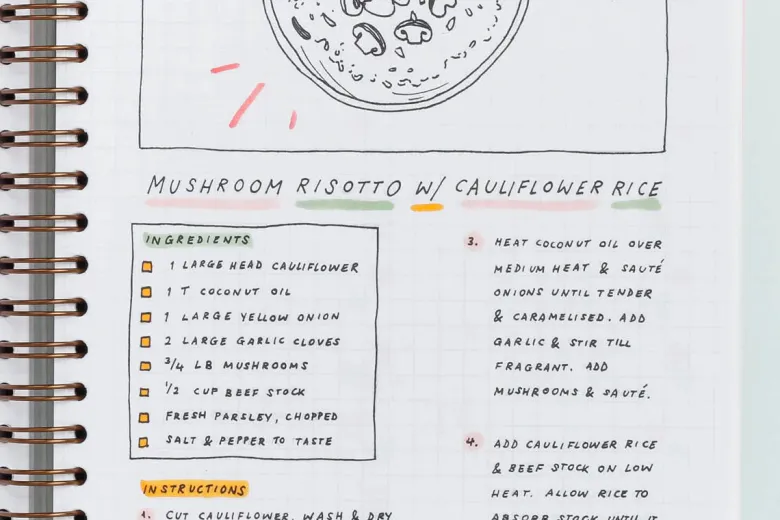 MUSHROOM RISOTTO W/ CAULIFLOWER RICE
INGREDIENTS
1 LARGE HEAD CAULIFLOWER
1 T COCONUT OIL
1 LARGE YELLOW ONION
2 LARGE GARLIC CLOVES
3/4 LB MUSHROOMS
1/2 CUP BEEF STOCK
FRESH PARSLEY, CHOPPED
SALT & PEPPER TO TASTE
INSTRUCTIONS
1. CUT CAULIFLOWER, WASH & DRY
3. HEAT COCONUT OIL OVER
MEDIUM HEAT & SAUTÉ
ONIONS UNTIL TENDER
& CARAMELISED. ADD
GARLIC & STIR TILL
FRAGRANT. ADD
MUSHROOMS & SAUTÉ.
4. ADD CAULIFLOWER RICE
& BEEF STOCK ON LOW
HEAT. ALLOW RICE TO
ABSORB STOCK UNTIL IT